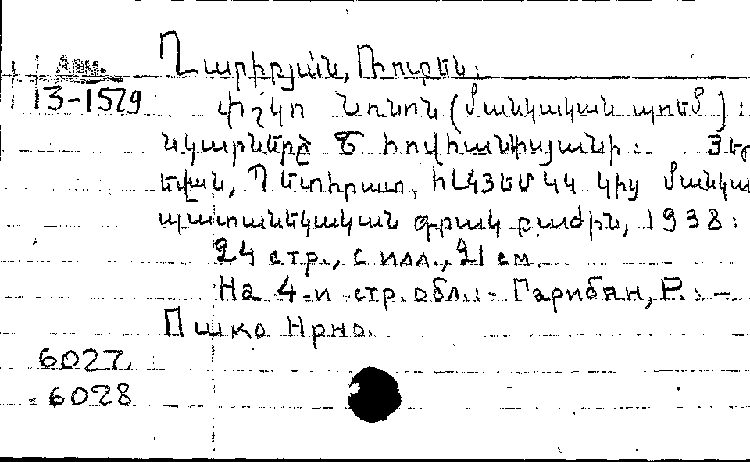 Арм.
Ղարիբյան, Ռուբեն:
13-1529
Փշկո (մանկական պոեմ):
նկարները Ե Հովհաննիսյանի: Յեր
եվան, Պետհրատ, ՀԼԿՅԵՄ ԿԿ կից մանկա
պատանեկական գրակ բաժին, 1938:
24 стр., с илл., 21 см.
На 4-й стр. обл.:- Гарибян, Р.: -
Пшко Нрно.
6027
6028